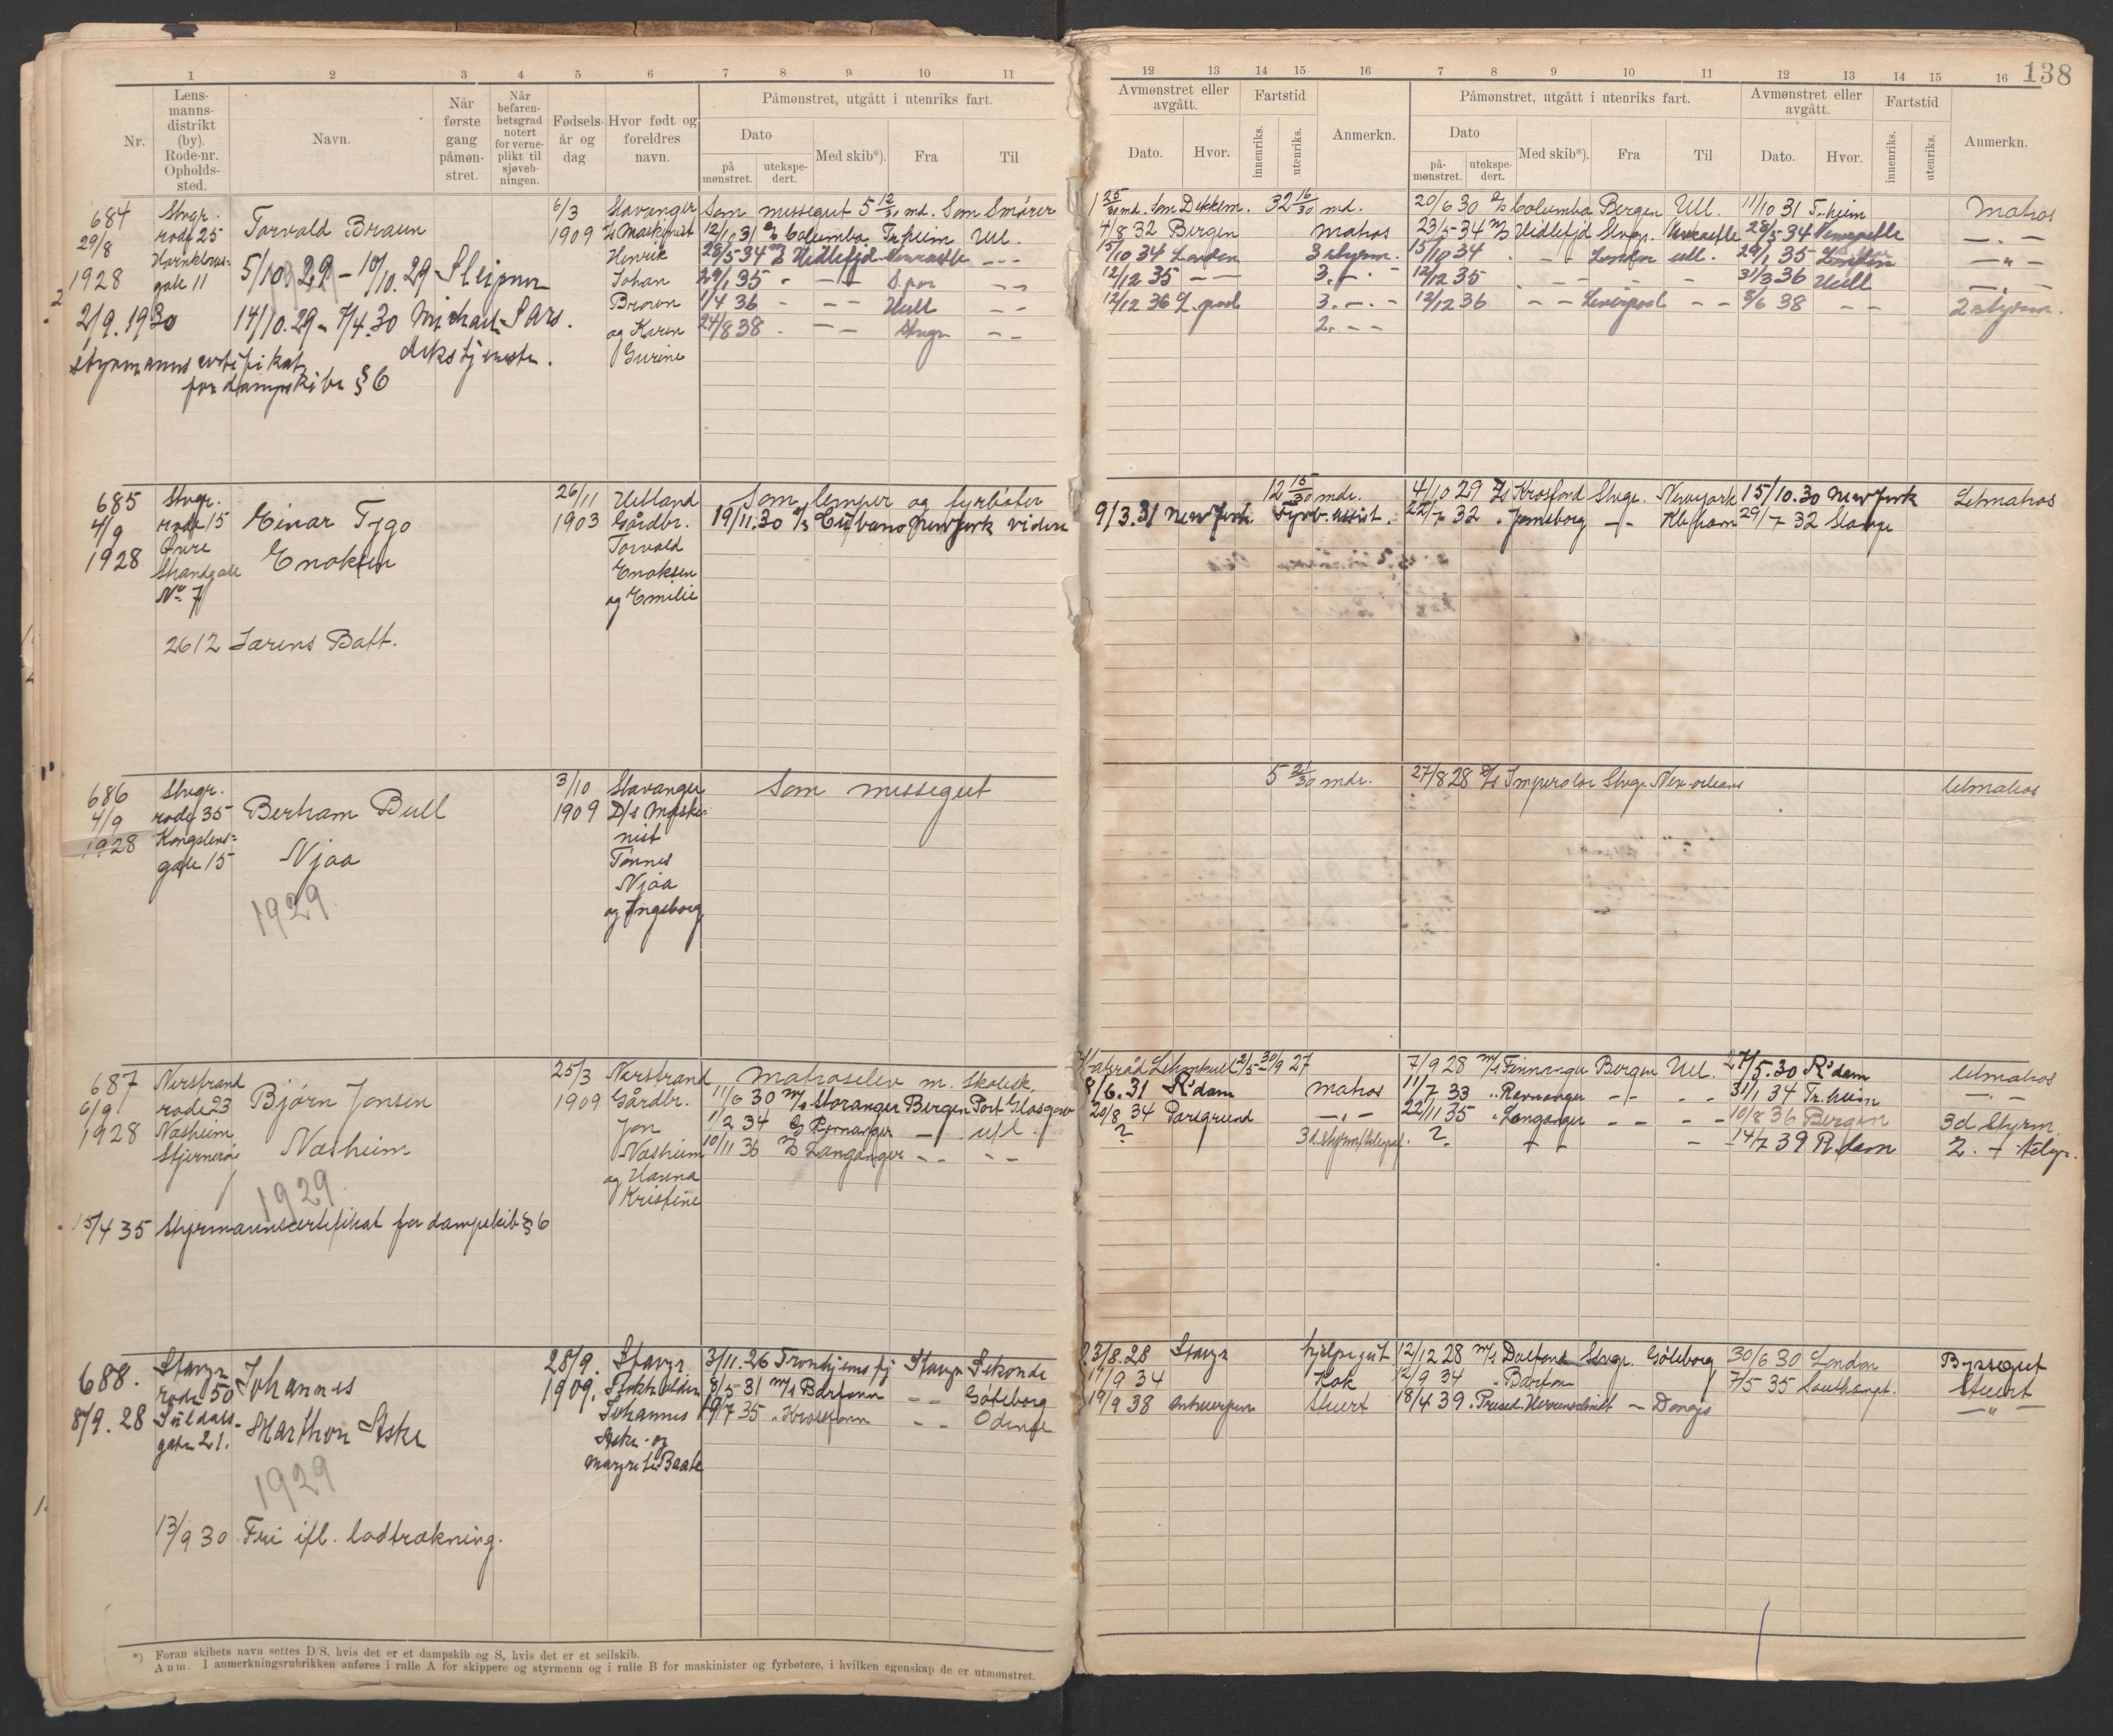 138
1 2 3 4 5 6 7 8 9 10 11
12 13 14 15 16 7 8 9 10 11 12 13 14 15 16
Nr.
Lens-
manns-
distrikt
(by).
Rode-nr.
Opholds-
sted.
Navn.
Når
første
gang
påmøn-
stret.
Når
befaren-
hetsgrad
notert
for verne-
plikt til
sjøveb-
ningen.
Fødsels-
år og
dag
Hvor født og
foreldres
navn.
Påmønstret, utgått i utenriks fart.
Dato
på
mønstret.
utekspe-
dert.
Med skib*).
Fra
Til
Avmønstret eller
avgått.
Dato.
Hvor.
Fartstid
innenriks.
utenriks.
Anmerkn.
Påmønstret, utgått i utenriks fart.
Dato
på-
mønstret.
utekspe-
dert.
Med skib*).
Fra
Til
Avmønstret eller
avgått.
Dato.
Hvor.
Fartstid
innenriks.
utenriks.
Anmerkn.
684
29/8
1928
Stvgr.
rode 25
gate 11
Torvald Braun
5/10 29 – 10/10. 29 – Sleipner
2/9. 1930
14/10. 29 – 7/4. 30 Michael Sars.
dekstjeneste.
for dampskibe § 6
6/3
1909
Stavanger
Maskinist
Henrik
Johan
Braun
og Karen
Gurine
Som messegut 5 12/30 md. Som Smører
12/10 31 Columba Tr.heim Utl.
28/5 34 Newcastle – –
29/1 35 – – –
1/4 36 – – Hull – –
24/8 38 – – Stvgr – –
Som Dekksm. 32 16/30 md.
4/8 32 Bergen matros
15/10 34 London 3 styrm.
12/12 35 – – 3. – –
12/12 36 L.pool 3. – –
2. – –
20/6 30 Columba Bergen Utl. 11/10 31 Tr.heim matros
23/5 34 Stvgr. Newcastle 28/5 34 Newcastle – . –
15/10 34 – – London utl. 29/1 35 London – " –
12/12 35 – – – 31/3 36 Hull – . –
12/12 36 – – Liverpool – – 8/6 38 – – 2 styrm.
685
4/9
1928
Stvgr.
rode 15
Øvre
Strandgate
No 7
Einar Tygo
Enoksen
2612 Jærens Batt.
26/11
1903
Hetland
Gårdbr.
Torvald
Enoksen
og Emilie
Som lemper og fyrbøter
19/11. 30 Cubano New York videre
12 15/30 mdr.
9/3. 31 New York Fyrb. assist.
4/10 29 D/s Krosfond Stvgr. Newyork 15/10. 30 New York Letmatros
22/7 32 Jomsborg – – Kbhavn 29/7 32 Stavgr
686
4/9
1928
Stvgr.
rode 35
gate 15
Berham Bull
Njaa
1929
3/10
1909
Stavanger
D/s Maski-
nist
Tønnes
Njaa
og Ingeborg
Som messegut
5 21/30 mdr.
27/8 28 D/s Imperator Stvgr. New-orleans letmatros
687
6/9
1928
Nerstrand
rode 23
Næsheim
Stjernerøi
Bjørn Jonsen
Næsheim
1929
15/4 35 Styrmannscertifikat for dampskib § 6
25/3
1909
Nerstrand
Gårdbr.
Jon
Næsheim
og Hanna
Kristine
Matroselev m. skolesk.
11/6 30 M/s Storanger Bergen Port Glasgow
1/2 34 Ravnanger – utl.
10/11 36 Langanger – – – –
Statsråd Lehmkuhl 2/5-30/9 27
8/6. 31 R'dam matros
20/8 34 Porsgrund – " –
?
7/9 28 M/s Finnanger Bergen Utl. 27/5. 30 R'dam letmatros
11/7 33 Ravnanger – – – – 31/1 34 Tr.heim – " –
22/11 35 Langanger – – – – 10/8 36 Bergen 3d Styrm.
?. 14/7 39 R.dam
688.
8/9. 28
Stavgr
rode 50
Suldals-
gaten 21.
Johannes
Marthon Aske
1929
13/9 30 Fri ifl. lodtrækning.
28/9.
1909.
Stavgr
Johannes
Aske og
3/11. 26 Tronhjemsfj Stavgr Sekondi
8/5-31 M/s Barfonn – – Göteborg
19/7 35 Krossfonn – – Odense
23/8. 28 Stavgr hjelpegut
17/9 34 Kok
19/9 38 Antwerpen Stuert
12/12 28 M/s Dalfonn Stvgr. Göteborg 30/6 30 London Byssegut
12/9 34 Barfonn 7/5 35 Southampt. Stuert
18/4 39 – Donges – " –
*) Foran skibets navn settes D/S, hvis det er et dampskib og S, hvis det er et seilskib.
Anm. I anmerkningsrubrikken anføres i rulle A for skippere og styrmenn og i rulle B for maskinister og fyrbøtere, i hvilken egenskap de er utmønstret.